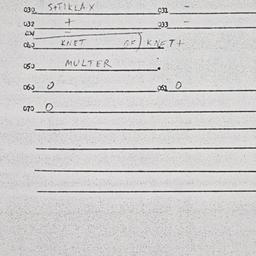 030 S+TIKLAX 031 -
032 + 033 -
034 -
040 KNET KNET+
050 MULTER
060 0 061 0
070 0